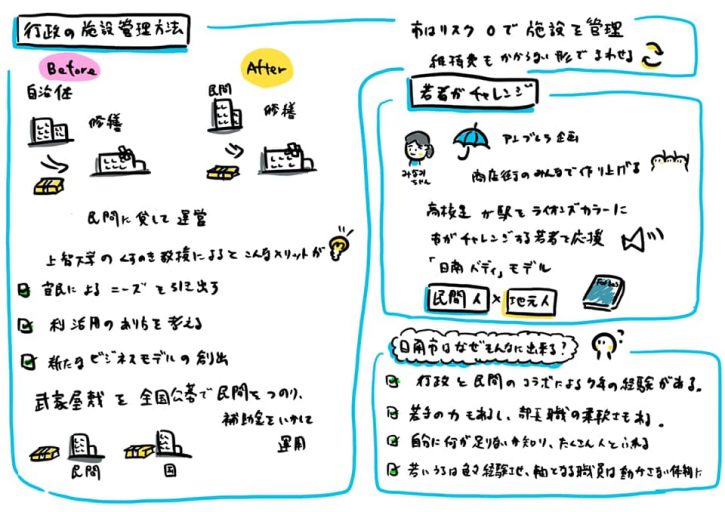 行政の施設管理方法
Before
After
自治体
修繕
民間
修繕
民間に貸して運営
上智大学のくすのき教授によるとこんなメリットが
官民によるニーズを引き出す
利活用のあり方を考える
新たなビジネスモデルの創出
武家屋敷を全国公募で民間をつのり、
補助金をいかして
運用
民間
国
市はリスク0で施設を管理
維持費もかからない形でまわせる
若者がチャレンジ
みなみちゃん
アンブレラ企画
商店街のみんなで作り上げる
高校生が駅をライオンズカラーに
市がチャレンジする若者を応援
「日南バディ」モデル
民間人×地元人
Forbes
日南市はなぜそんなに出来る?
行政と民間のコラボによる
の経験がある。
若手の力もあるし、部長職の柔軟さもある。
自分に何が足りないか知り、たくさん人といれる
若いうちは色々経験せ、軸となる職員は動かさない体制に